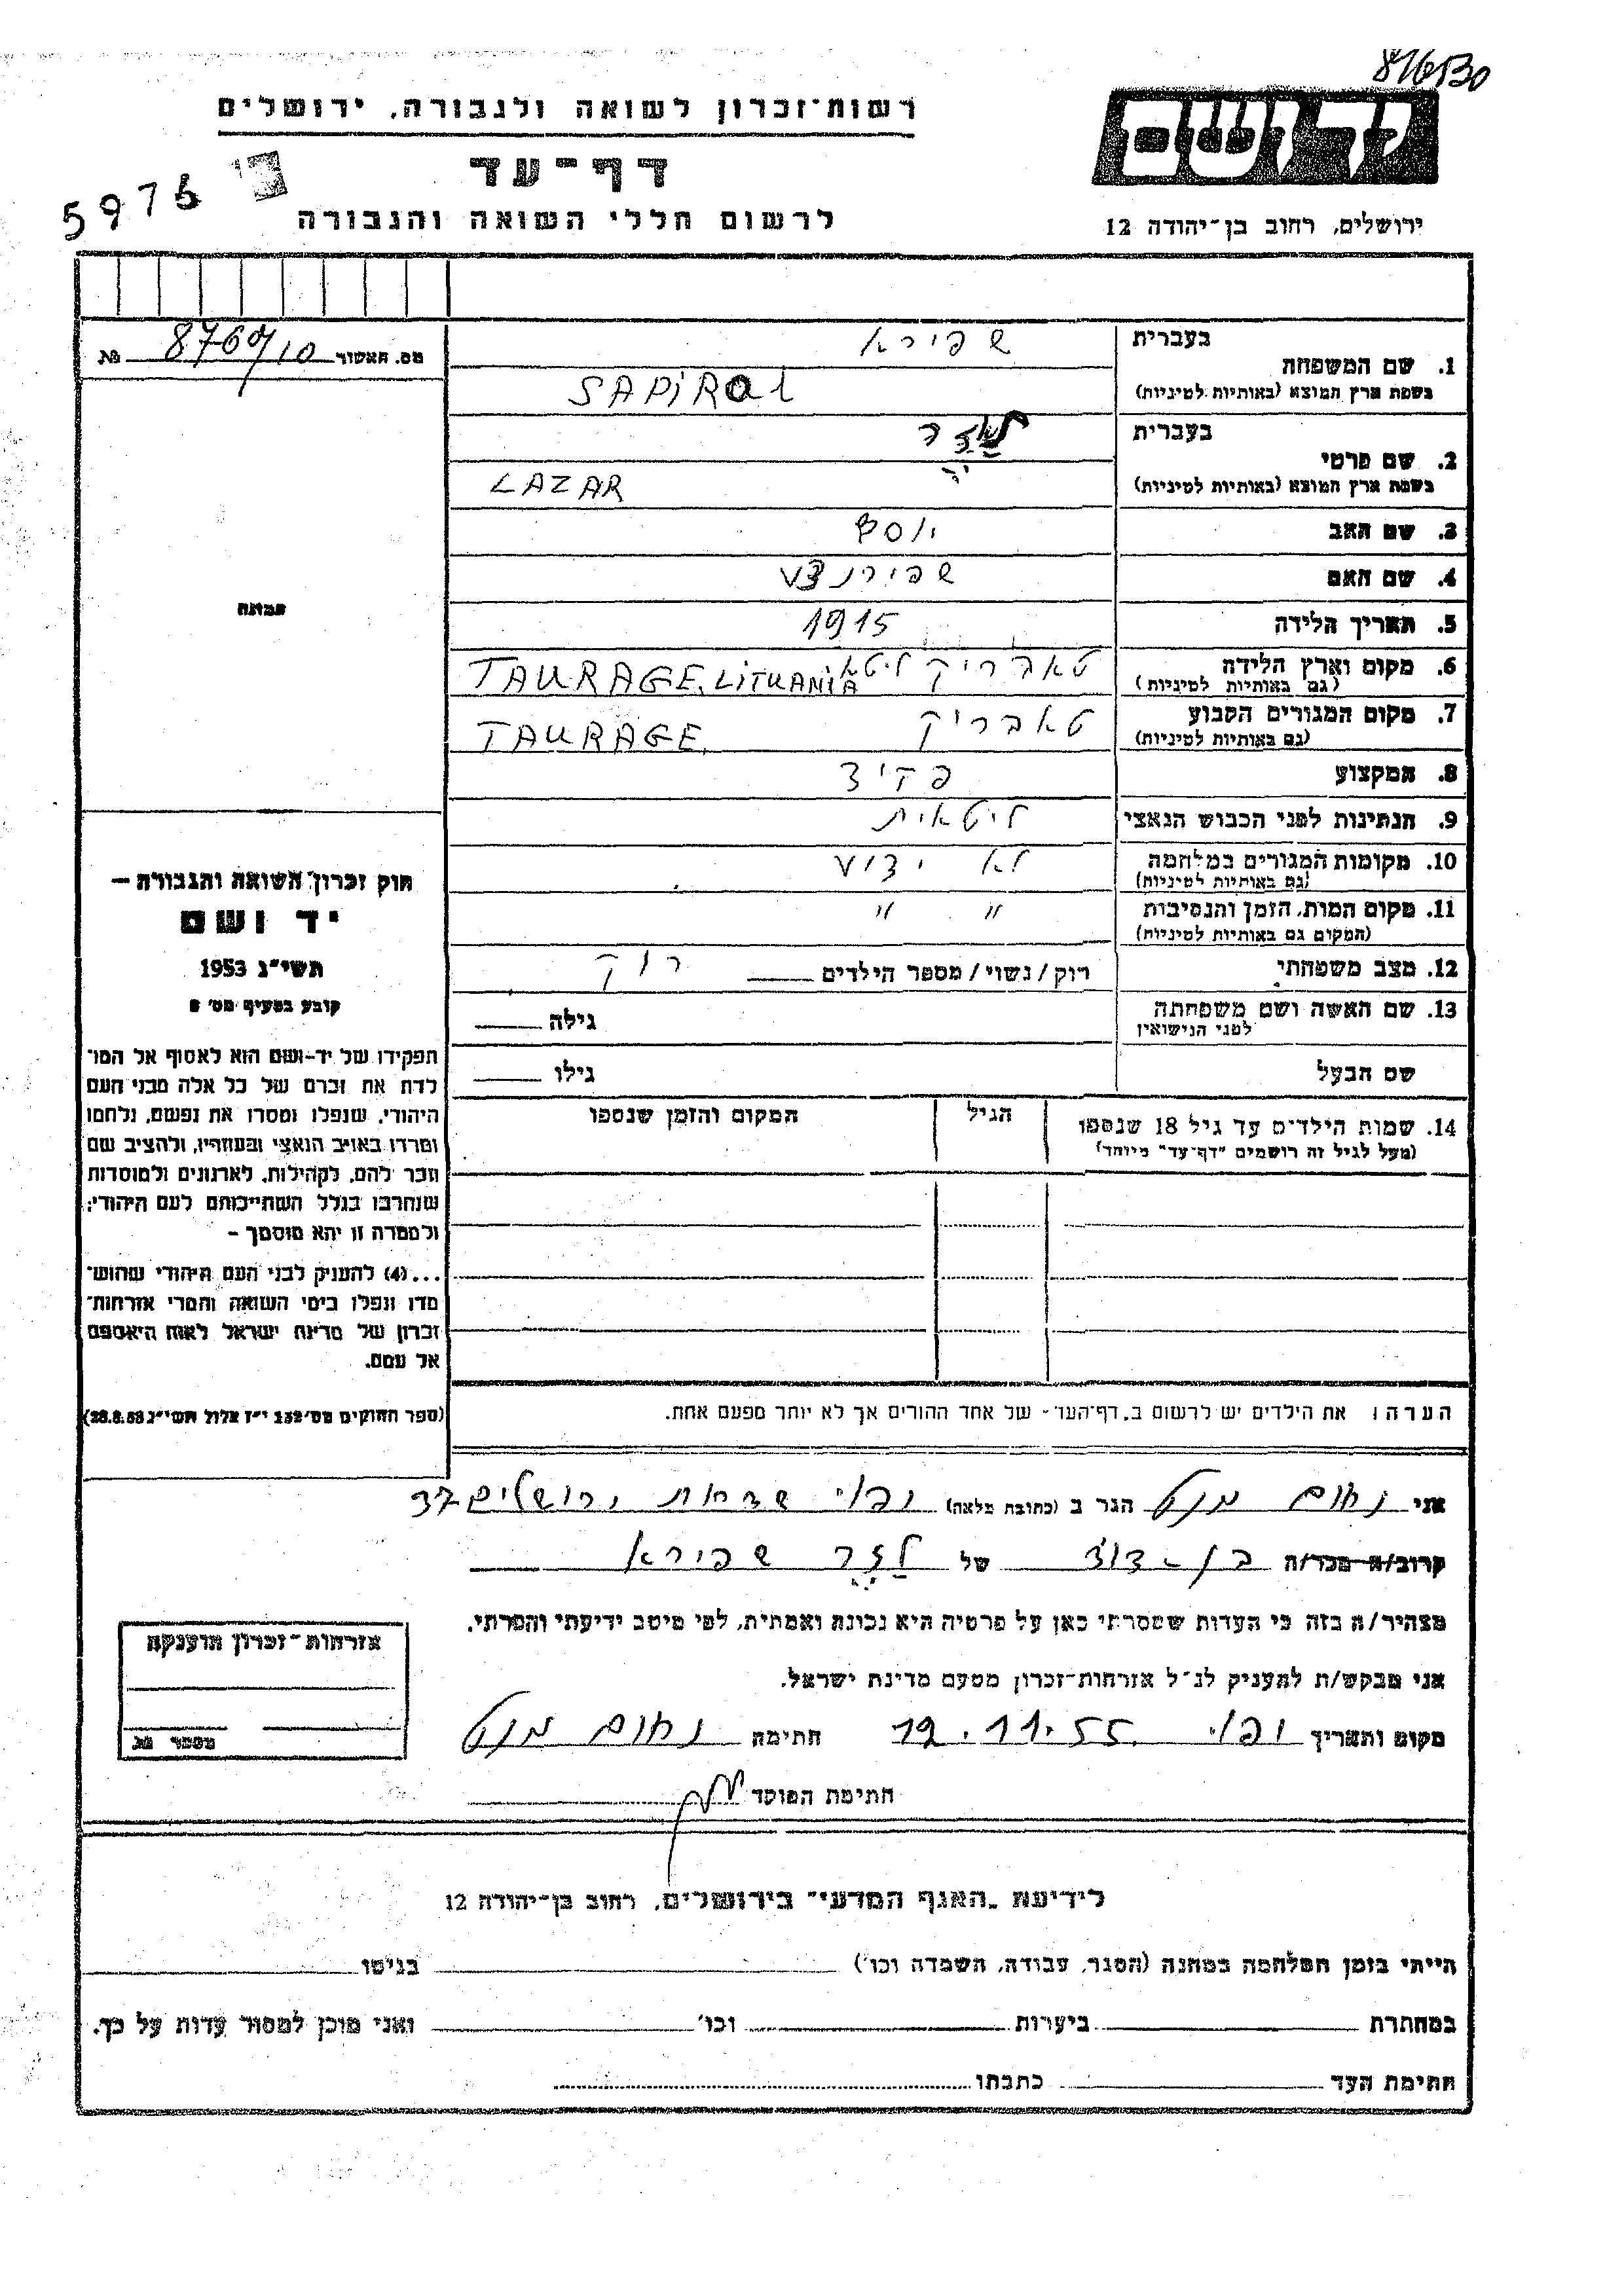 816530
רשות־זכרון לשואה ולגבורה, ירושלים
דף־עד
לרשום חללי השואה והגבורה
5976
יד ושם
ירושלים, רחוב בן־יהודה 12
מס. האשור
בעברית
שפירא
1. שם המשפחה
בשפת ארץ המוצא (באותיות לטיניות)
SAPIRAI
בעברית
לאזר
2. שם פרטי
בשפת ארץ המוצא (באותיות לטיניות)
LAZAR
3. שם האב
יוסף
4. שם האם
5. תאריך הלידה
1915
6. מקום וארץ הלידה
(גם באותיות לטיניות)
טאבריק ליטא. TAURAGE. LiTUANiA
7. מקום המגורים הקבוע
(גם באותיות לטיניות)
טאבריק TAURAGE.
8. המקצוע
פקיד
9. הנתינות לפני הכבוש הנאצי
ליטאית
10. מקומות המגורים במלחמה
(גם באותיות לטיניות)
לא ידוע
11. מקום המות, הזמן והנסיבות
(המקום גם באותיות לטיניות)
״ ״
12. מצב משפחתי
רוק/נשוי/מספר הילדים רוק
13. שם האשה ושם משפחתה
לפני הנישואין
גילה
שם הבעל
גילו
14. שמות הילדים עד גיל 18 שנספו
(מעל לגיל זה רושמים "דף־עד" מיוחד)
הגיל
המקום והזמן שנספו
תמונה
חוק זכרון השואה והגבורה –
יד ושם
תשי״ג 1953
קובע בסעיף מס׳ 2
תפקידו של יד-ושם הוא לאסוף אל המו־
לדת את זכרם של כל אלה מבני העם
היהודי, שנפלו ומסרו את נפשם, נלחמו
ומרדו באויב הנאצי ובעוזריו, ולהציב שם
וזכר להם, לקהילות, לארגונים ולמוסדות
שנחרבו בגלל השתייכותם לעם היהודי;
ולמטרה זו יהא מוסמך –
...(4) להעניק לבני העם היהודי שהוש־
מדו ונפלו בימי השואה והמרי אזרחות־
זכרון של מדינת ישראל לאות היאספם
אל עמם.
(ספר החוקים מס׳ 132 י״ז אלול תשי״ג 28.8.53)
הערה: את הילדים יש לרשום ב„דף־העד״ של אחד ההורים אך לא יותר מפעם אחת.
אני נחום הגר ב (כתובת מלאה) ירושלים 37
קרוב/ה מכר/ה בן-דוד של לזר שפירא
מצהיר/ה בזה כי העדות שמסרתי כאן על פרטיה היא נכונה ואמתית, לפי מיטב ידיעתי והכרתי.
אני מבקש/ת להעניק לנ״ל אזרחות־זכרון מטעם מדינת ישראל.
מקום ותאריך 12.11.55 חתימה נחום
חתימת הפוקד
אזרחות־זכרון הוענקה
לידיעת „האגף המדעי״ בירושלים, רחוב בן־יהודה 12
הייתי בזמן המלחמה במחנה (הסגר, עבודה, השמדה וכו׳) בגיטו
במחתרת ביערות וכו׳ ואני מוכן למסור עדות על כך.
חתימת העד כתבתו